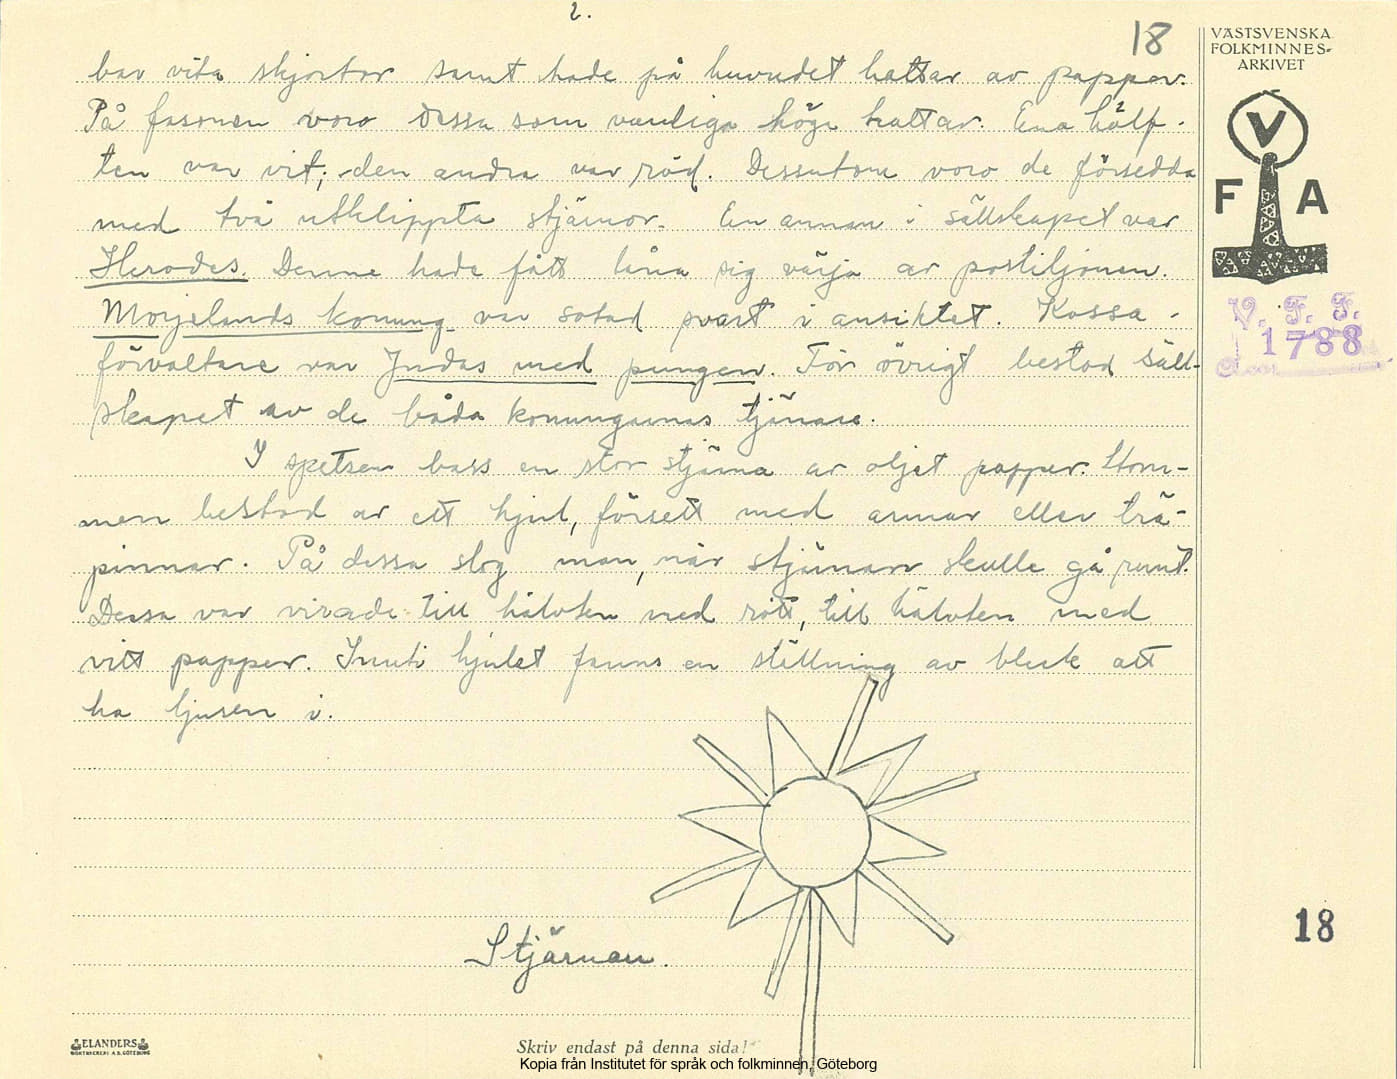 2.
18
VÄSTSVENSKA
FOLKMINNES-
ARKIVET
V
F A
V. F. F.
1788
bar vita skjortor samt hade på huvudet hattar av papper.
På fasonen voro dessa som vanliga höga hattar. Ena hälf-
ten var vit, den andra var röd. Dessutom voro de försedda
med två utklippta stjärnor. En annan i sällskapet var
Herodes. Denne hade fått låna sig värja av postiljonen.
Morjelands konung var sotad svart i ansiktet. Kassa-
förvaltare var Judas med pungen. För övrigt bestod säll-
skapet av de båda konungarnas tjänare.
I spetsen bars en stor stjärna av oljat papper. Stom-
men bestod av ett hjul, försett med armar eller trä-
pinnar. På dessa slog man, när stjärnan skulle gå runt.
Dessa var virade till hälvten med rött, till hälvten med
vitt papper. Inuti hjulet fanns en ställning av bleck att
ha ljusen i.
Stjärnan.
18
ELANDERS
BOKTRYCKERI A.B. GÖTEBORG
Skriv endast på denna sida!
Kopia från Institutet för språk och folkminnen, Göteborg